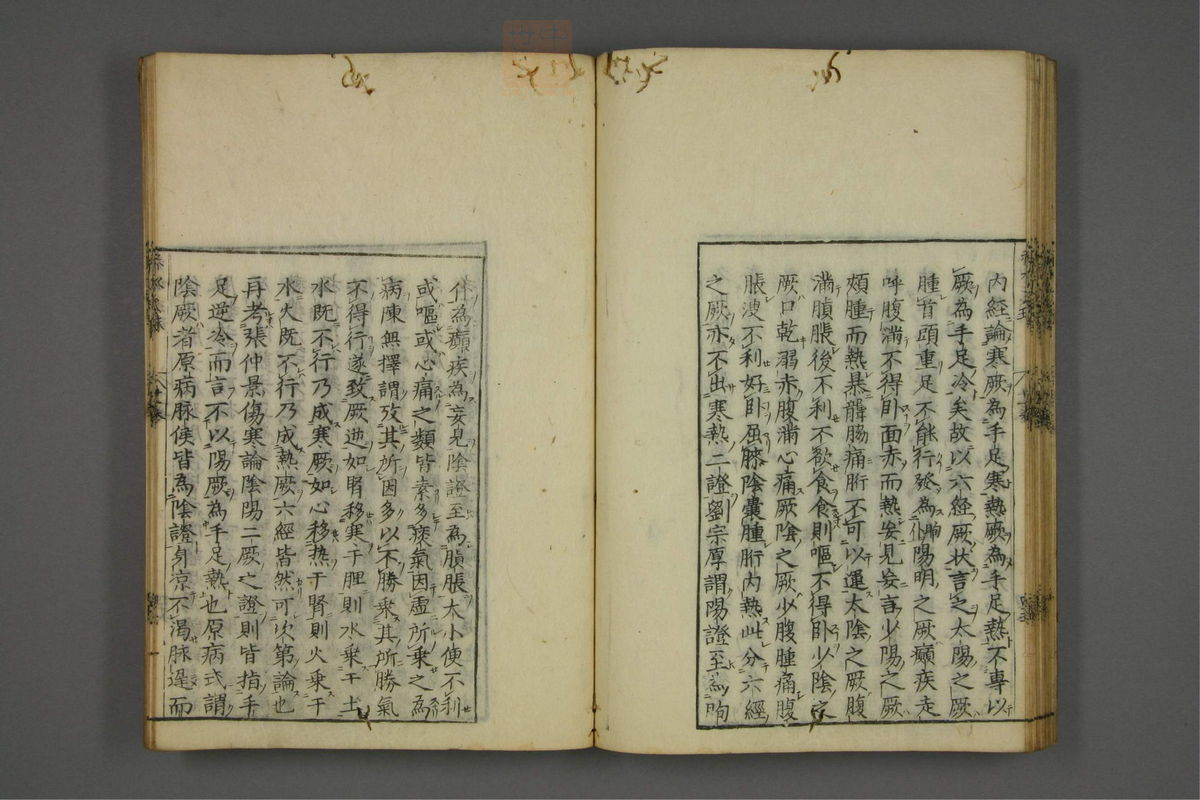 内經論寒厥為手足寒熱厥為手足熱不專以
厥為手足冷矣故以六經厥狀言之太陽之厥
腫首頭重足不能行發為眴仆陽明之厥癲疾走
呼腹滿不得臥面赤而熱妄見妄言少陽之厥
頰腫而熱暴聾脇痛胻不可以運太陰之厥腹
滿䐜脹後不利不欲食食則嘔不得臥少陰之
厥口乾溺赤腹滿心痛厥陰之厥少腹腫痛腹
脹溲不利好臥屈膝陰囊腫胻內熱此分六經
之厥亦不出寒熱二證劉宗厚謂陽證至為眴
仆為癲疾為妄見陰證至為䐜脹大小便不利
或嘔或心痛之類皆素多痰氣因虛所乘之為
病陳無擇謂攷其所因多以不勝乘其所勝氣
不得行遂致厥逆如腎移寒于脾則水乘于土
水既不行乃成寒厥如心移热于腎則火乘于
水火既不行乃成熱厥六經皆然可次第論也
再考張仲景傷寒論陰陽二厥之證則皆指手
足逆冷而言不以陽厥為手足熱也原病式謂
陰厥者原病脉候皆為陰證身凉不渴脉遲而